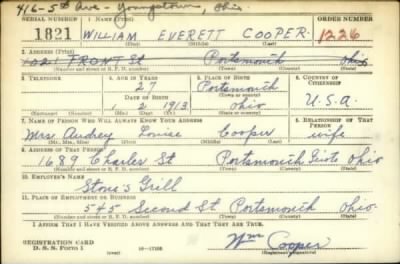 416-5th Ave - Youngstown, Ohio
SERIAL NUMBER 1. NAME (Print) ORDER NUMBER
1821 WILLIAM EVERETT COOPER. 1226
2. ADDRESS (Print)
1021 FRONT St Portsmouth Ohio
(Number and street or R. F. D. number) (Town) (County) (State)
3. TELEPHONE 4. AGE IN YEARS 5. PLACE OF BIRTH 6. COUNTRY OF CITIZENSHIP
27 Portsmouth
DATE OF BIRTH (Town or county)
1 2 1913 Ohio U.S.A.
(Exchange) (Number) (Mo.) (Day) (Yr.) (State or country)
7. NAME OF PERSON WHO WILL ALWAYS KNOW YOUR ADDRESS 8. RELATIONSHIP OF THAT PERSON
Mrs Audrey Louise Cooper wife
(Mr., Mrs., Miss) (First) (Middle) (Last)
9. ADDRESS OF THAT PERSON
1689 Charles St Portsmouth Scioto Ohio
(Number and street or R. F. D. number) (Town) (County) (State)
10. EMPLOYER'S NAME
Stone's Grill
11. PLACE OF EMPLOYMENT OR BUSINESS
545 Second St Portsmouth Ohio
(Number and street or R. F. D. number) (Town) (County) (State)
I AFFIRM THAT I HAVE VERIFIED ABOVE ANSWERS AND THAT THEY ARE TRUE.
REGISTRATION CARD
D. S. S. Form 1 (over) Wm Cooper
(Registrant's signature)